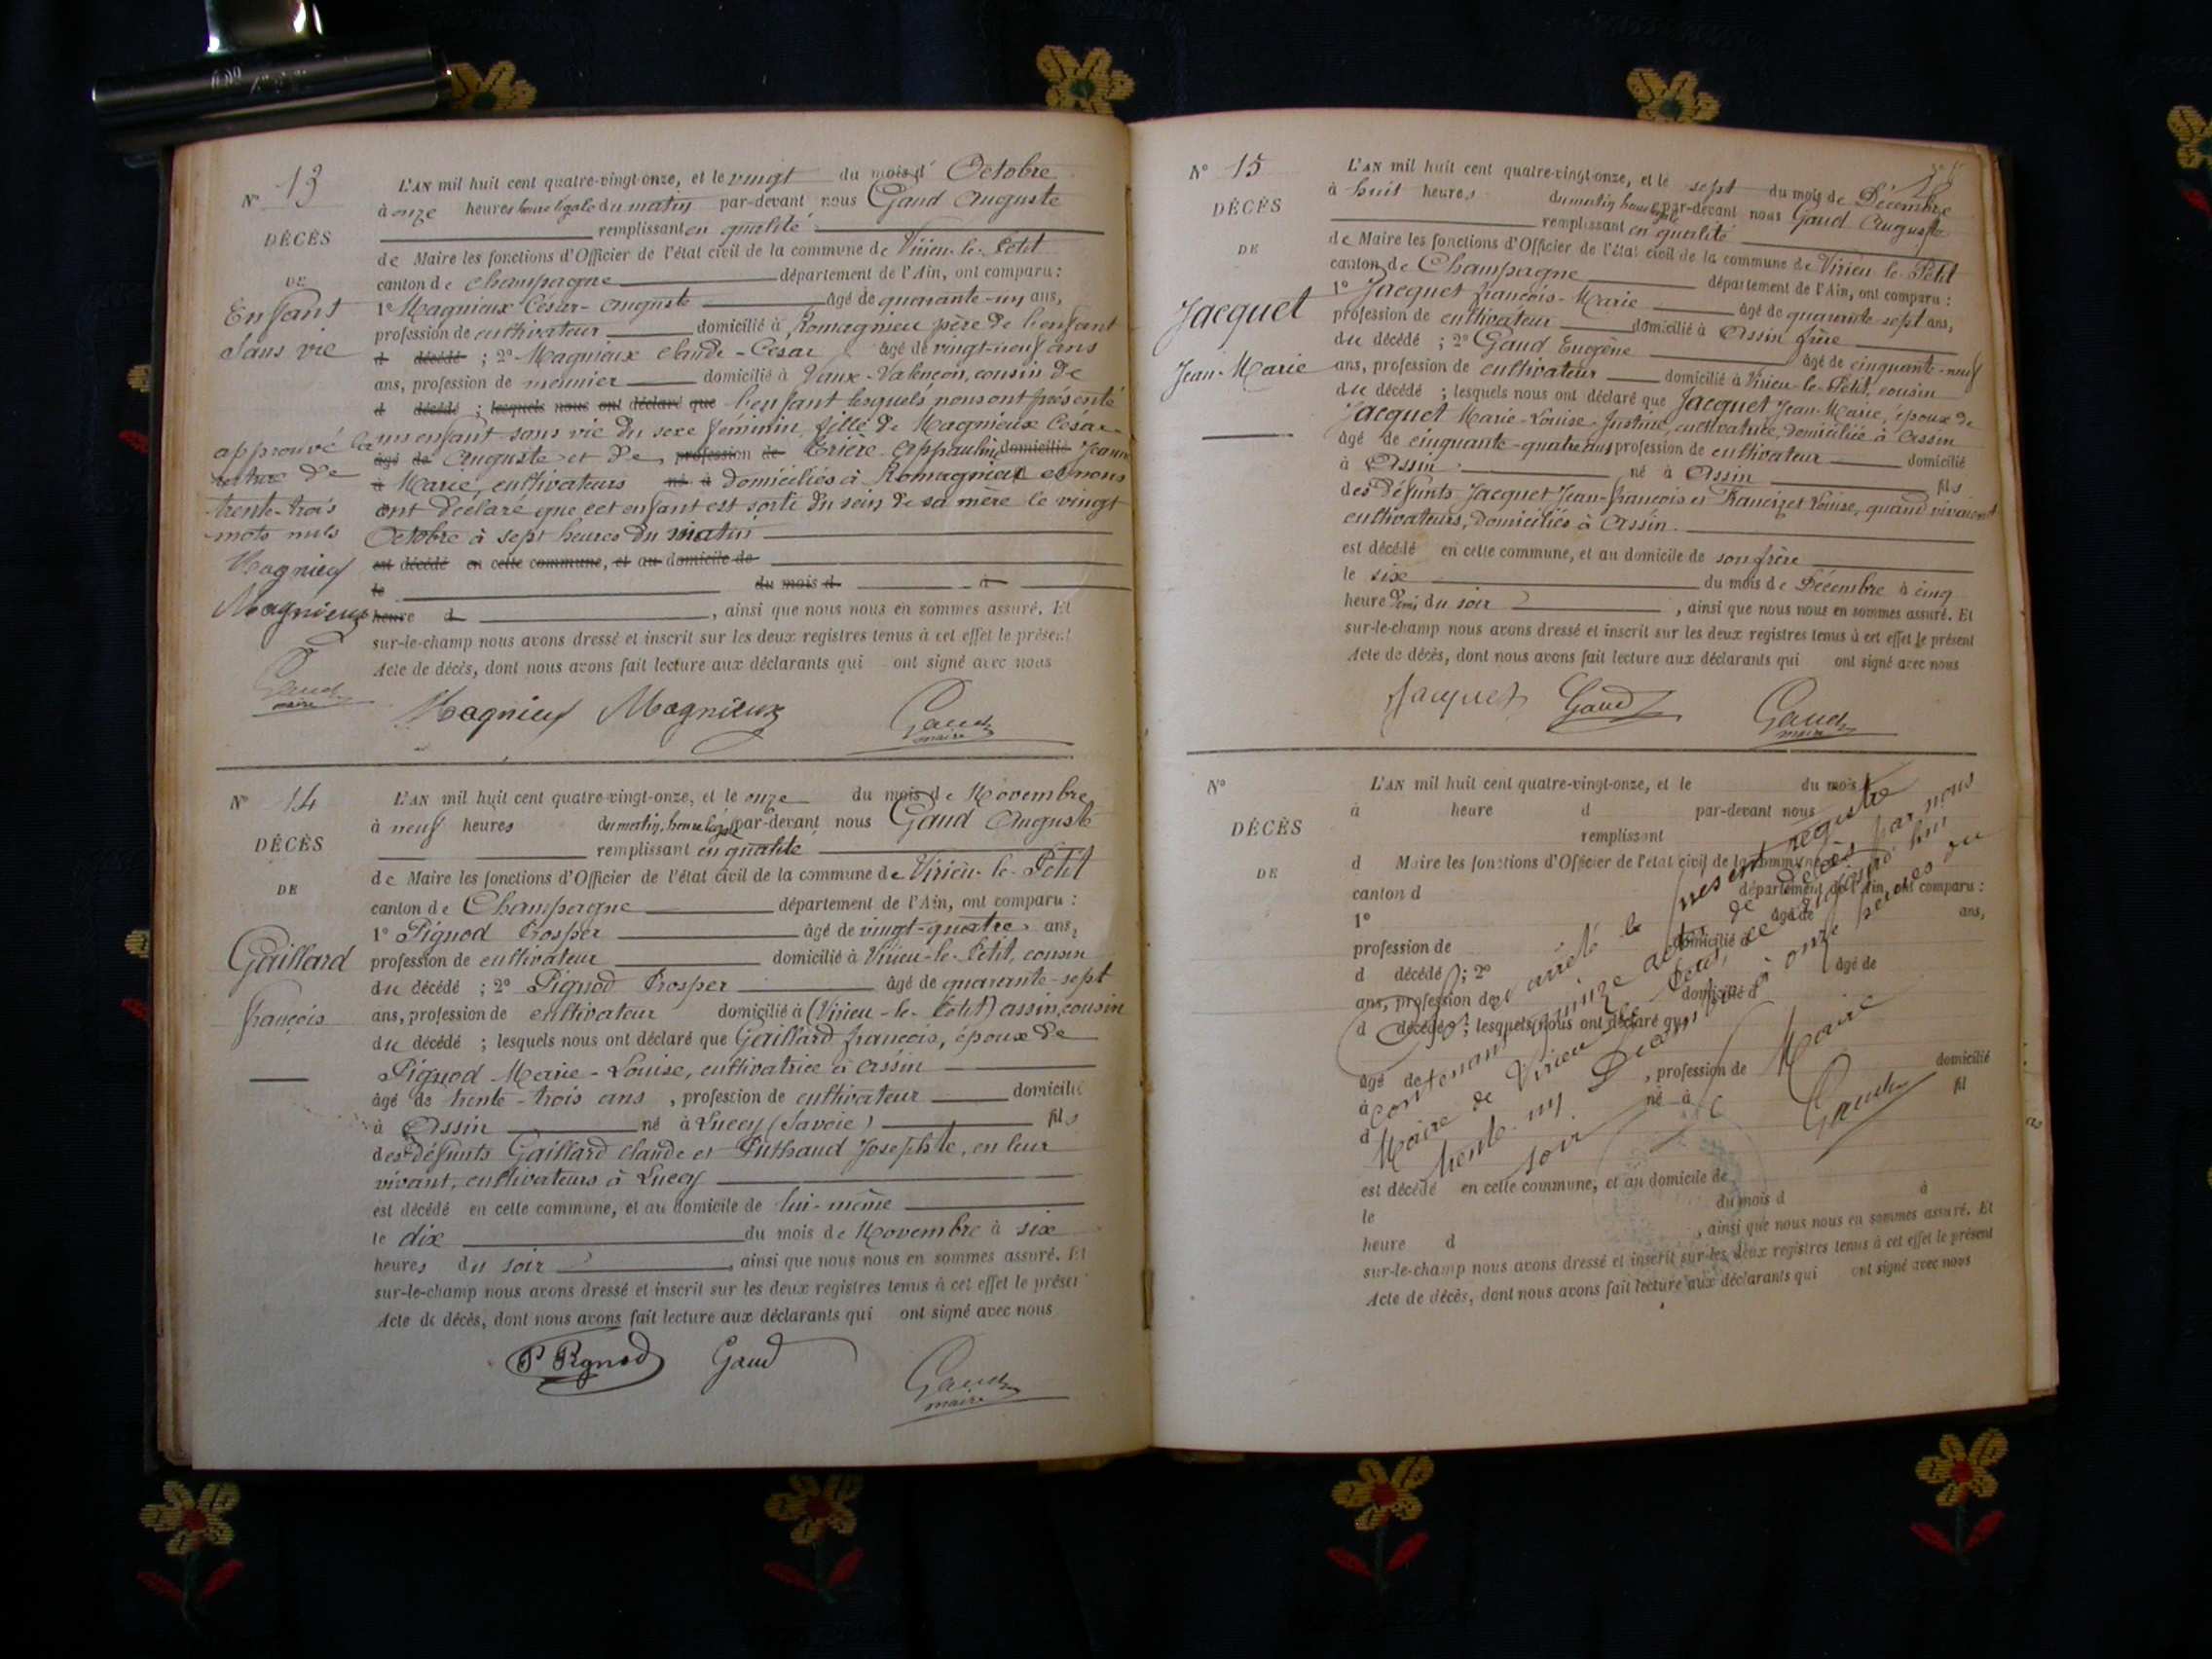 N° 13
DÉCÈS
DE
Enfant
Sans vie
L'AN mil huit cent quatre-vingt-onze, et le vingt du mois d' Octobre
à onze heures heure légale du matin par-devant nous Gaud Auguste
remplissant en qualité
de Maire les fonctions d'Officier de l'état civil de la commune de Virieu-le-Petit
canton de Champagne département de l'Ain, ont comparu :
1° Magnieux César-Auguste âgé de quarante-un ans,
profession de cultivateur domicilié à Romagnieu père de l'enfant
d décédé ; 2° Magnieux Claude-César âgé de vingt-neuf ans
ans, profession de meunier domicilié à Vaux-Valençon, cousin de
d décédé ; lesquels nous ont déclaré que l'enfant lesquels nous ont présenté
un enfant sans vie du sexe féminin, fille de Magnieux César-
âgé de Auguste et de profession de domicilié Jeanne
à Marie, cultivateurs né à domiciliés à Romagnieu et nous
ont déclaré que cet enfant est sorti du sein de sa mère le vingt
Octobre à sept heures du matin
est décédé en cette commune, et au domicile de
le du mois d à
heure d , ainsi que nous nous en sommes assuré. Et
sur-le-champ nous avons dressé et inscrit sur les deux registres tenus à cet effet le présent
Acte de décès, dont nous avons fait lecture aux déclarants qui ont signé avec nous
approuvé la
de
trente-trois
mots nuls
Magnieux
Magnieux
Gaud
maire
Magnieux Magnieux Gaud
maire
N° 14
DÉCÈS
DE
Gaillard
François
L'AN mil huit cent quatre-vingt-onze, et le onze du mois de Novembre
à neuf heures du matin, heure légale par-devant nous Gaud Auguste
remplissant en qualité
de Maire les fonctions d'Officier de l'état civil de la commune de Virieu-le-Petit
canton de Champagne département de l'Ain, ont comparu :
1° Pignod Prosper âgé de vingt-quatre ans,
profession de cultivateur domicilié à Virieu-le-Petit, cousin
du décédé ; 2° Pignod Prosper âgé de quarante-sept
ans, profession de cultivateur domicilié à (Virieu-le-Petit) assin, cousin
du décédé ; lesquels nous ont déclaré que Gaillard François, époux de
Pignod Marie-Louise, cultivatrice à Assin
âgé de trente-trois ans , profession de cultivateur domicilié
à Assin né à Lucey (Savoie) fils
des défunts Gaillard Claude et Puthaud Josephte, en leur
vivant, cultivateurs à Lucey
est décédé en cette commune, et au domicile de lui-même
le dix du mois de Novembre à six
heures du soir , ainsi que nous nous en sommes assuré. Et
sur-le-champ nous avons dressé et inscrit sur les deux registres tenus à cet effet le présent
Acte de décès, dont nous avons fait lecture aux déclarants qui ont signé avec nous
P Pignod Gaud Gaud
maire
N° 15
DÉCÈS
DE
Jacquet
Jean-Marie
L'AN mil huit cent quatre-vingt-onze, et le sept du mois de Décembre
à huit heures du matin heure légale par-devant nous Gaud Auguste
remplissant en qualité
de Maire les fonctions d'Officier de l'état civil de la commune de Virieu-le-Petit
canton de Champagne département de l'Ain, ont comparu :
1° Jacquet François-Marie âgé de quarante-sept ans,
profession de cultivateur domicilié à Assin frère
du décédé ; 2° Gaud Eugène âgé de cinquante-neuf
ans, profession de cultivateur domicilié à Virieu-le-Petit, cousin
du décédé ; lesquels nous ont déclaré que Jacquet Jean-Marie, époux de
Jacquet Marie-Louise-Justine, cultivatrice, domiciliée à Assin
âgé de cinquante-quatre ans profession de cultivateur domicilié
à Assin né à Assin fils
des défunts Jacquet Jean-François et Louise, quand vivaient
cultivateurs, domiciliés à Assin.
est décédé en cette commune, et au domicile de son frère
le six du mois de Décembre à cinq
heure demi du soir , ainsi que nous nous en sommes assuré. Et
sur-le-champ nous avons dressé et inscrit sur les deux registres tenus à cet effet le présent
Acte de décès, dont nous avons fait lecture aux déclarants qui ont signé avec nous
Jacquet Gaud Gaud
maire
N°
DÉCÈS
DE
L'AN mil huit cent quatre-vingt-onze, et le du mois d
à heure d par-devant nous
remplissant
d Maire les fonctions d'Officier de l'état civil de la commune
canton d département de l'Ain, ont comparu :
1° âgé de ans,
profession de domicilié à
d décédé ; 2° âgé de
ans, profession de domicilié à
d décédé ; lesquels nous ont déclaré que
âgé de , profession de domicilié
à né à fil
d
est décédé en cette commune, et au domicile de
le du mois d à
heure d , ainsi que nous nous en sommes assuré. Et
sur-le-champ nous avons dressé et inscrit sur les deux registres tenus à cet effet le présent
Acte de décès, dont nous avons fait lecture aux déclarants qui ont signé avec nous
arrêté le présent registre
contenant quinze actes de décès par nous
Maire de Virieu-le-Petit, ce
trente-un Décembre à onze heures du
soir
Maire
Gaud